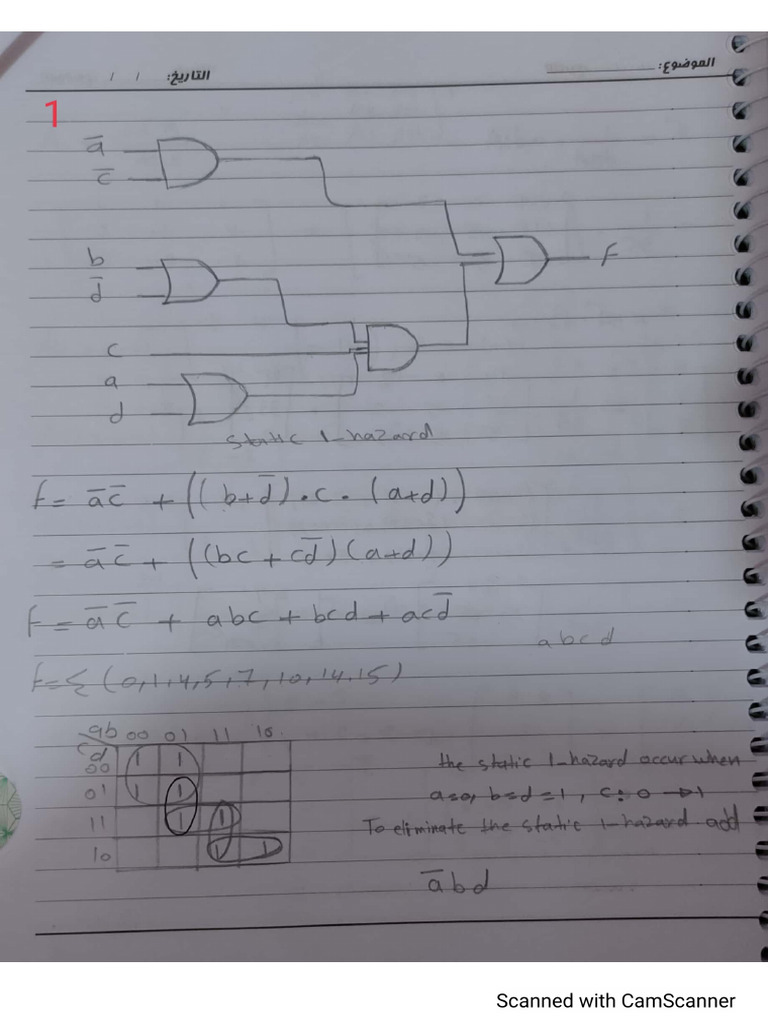 الموضوع:
التاريخ: / /
1
a̅
c̅
b
d̅
F
c
a
d
static 1-hazard
F = a̅c̅ + ((b+d̅).c.(a+d))
= a̅c̅ + ((bc + cd̅)(a+d))
F = a̅c̅ + abc + bcd + acd̅
abcd
F=Σ(0,1,4,5,7,10,14,15)
ab 00 01 11 10
cd
00 1 1
01 1 1
11 1 1
10 1 1
the static 1-hazard occur when
a=0, b=d=1, c: 0 → 1
To eliminate the static 1-hazard add
a̅bd
Scanned with CamScanner